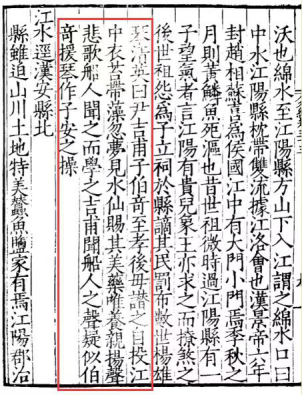 沃也綿水至江陽縣方山下入江謂之綿水口曰
中水江陽縣枕帶雙流據江洛會也漢景帝六年
封趙相蘇嘉為侯國江中有大闕小闕焉季秋之
月則也昔世祖微時過江陽縣有一
子望氣者言江陽有貴兒象王莽求之而獠煞之
後世祖怨為子立祠於縣謫其民罰布數世楊雄
琴清英曰尹吉甫子伯奇至孝後母譖之自投江
中衣苔帶藻忽夢見水仙賜其美藥唯養親揚聲
悲歌船人聞之而學之吉甫聞船人之聲疑似伯
奇援琴作子安之操
江水逕漢安縣北
縣雖迫山川土地特美蠶魚鹽家有焉江陽郡治